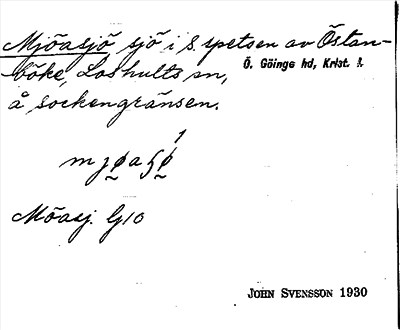 Mjöasjö sjö i S. spetsen av Östan-
böke, Loshults sn, Ö. Göinge hd, Krist. l.
å sockengränsen.
Möasj. G10
JOHN SVENSSON 1930